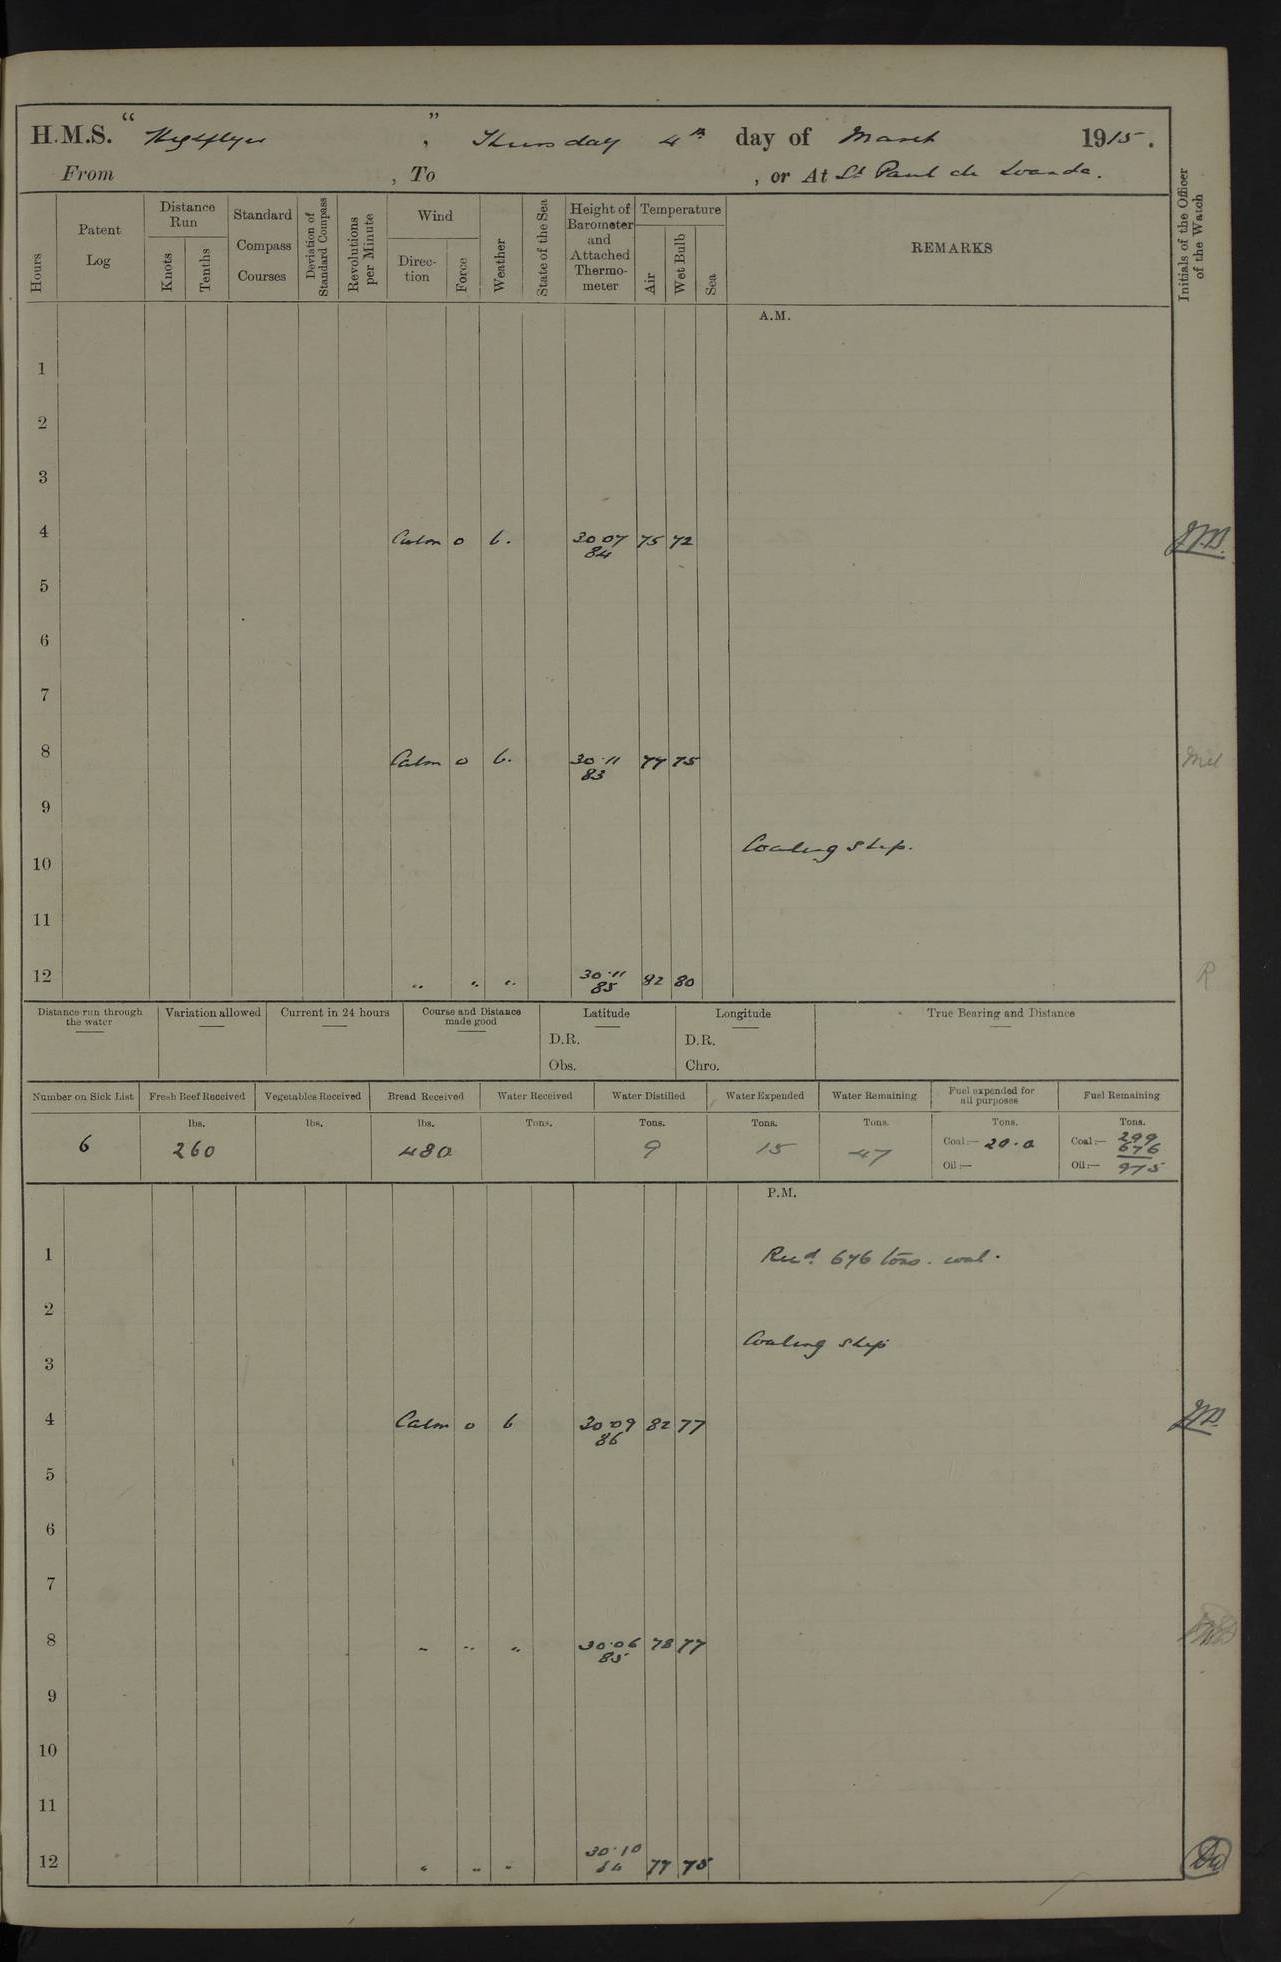 H.M.S. " Highflyer " , Thursday 4th day of March 1915.
From , To , or At St Paul de Loanda.
Hours
Patent Log
Distance Run
Knots
Tenths
Standard Compass Courses
Deviation of Standard Compass
Revolutions per Minute
Wind
Direction
Force
Weather
State of the Sea
Height of Barometer and Attached Thermometer
Temperature
Air
Wet Bulb
Sea
REMARKS
Initials of the Officer of the Watch
A.M.
1
2
3
4 Calm 0 b. 30 07 75 72
84
5
6
7
8 Calm 0 b. 30.11 77 75
83
9
Coaling ship.
10
11
12 " " " 30.11 82 80
85
Distance run through the water
Variation allowed
Current in 24 hours
Course and Distance made good
Latitude
D.R.
Obs.
Longitude
D.R.
Chro.
True Bearing and Distance
Number on Sick List
Fresh Beef Received
Vegetables Received
Bread Received
Water Received
Water Distilled
Water Expended
Water Remaining
Fuel expended for all purposes
Fuel Remaining
lbs. lbs. lbs. Tons. Tons. Tons. Tons. Tons. Tons.
6 260 480 9 15 47 Coal:— 20.0 Coal:— 299
676
Oil:— Oil:— 975
P.M.
1 Recd. 676 tons. coal.
2
Coaling ship
3
4 Calm 0 b 30 09 82 77
86
5
6
7
8 " " " 30.06 78 77
85
9
10
11
12 " " " 30.10 77 75
84